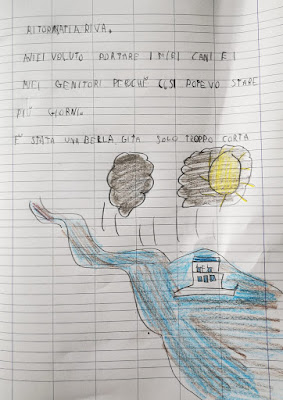 RITORNATI A RIVA,
AVREI VOLUTO PORTARE I MIEI CANI E I
MIEI GENITORI PERCHÉ COSÌ POTEVO STARE
PIÙ GIORNI.
È STATA UNA BELLA GITA SOLO TROPPO CORTA